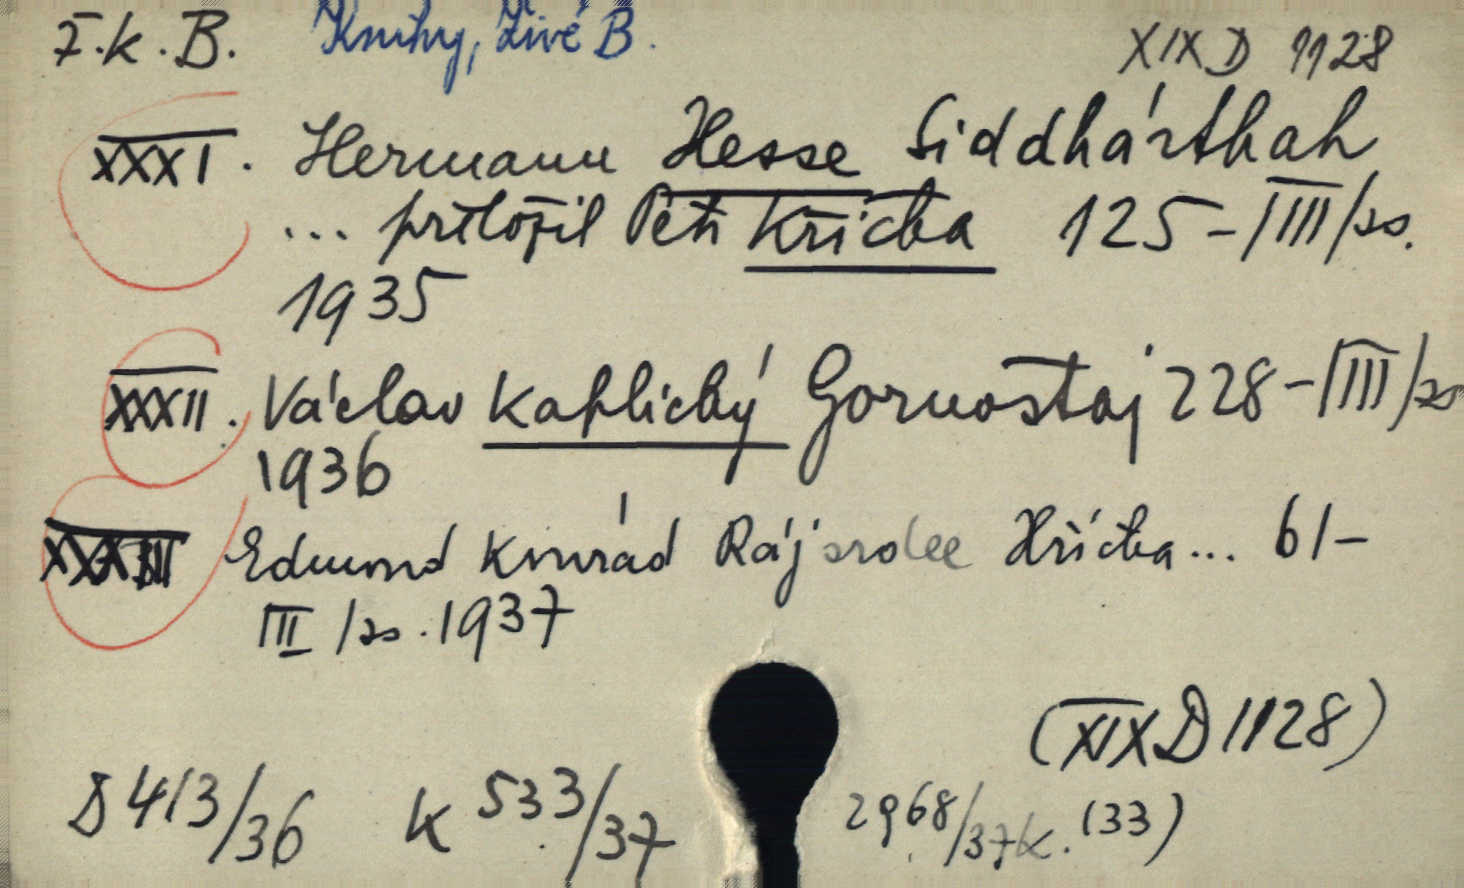 F.K.B. Knihy, Živé B. XIX D 1128
XXXI. Hermann Hesse Siddhárthah
... přeložil Petr Křička 125-|III|/zs.
1935
XXXII. Václav Kaplický Gornostaj 228-|III|/zs
1936
XXXIII Edmund Konrád Ráj srdce Hříčka... 61-
III /zs. 1937
(XIX D 1128)
D 413/36 K 533/37 2968/37 K. (33)